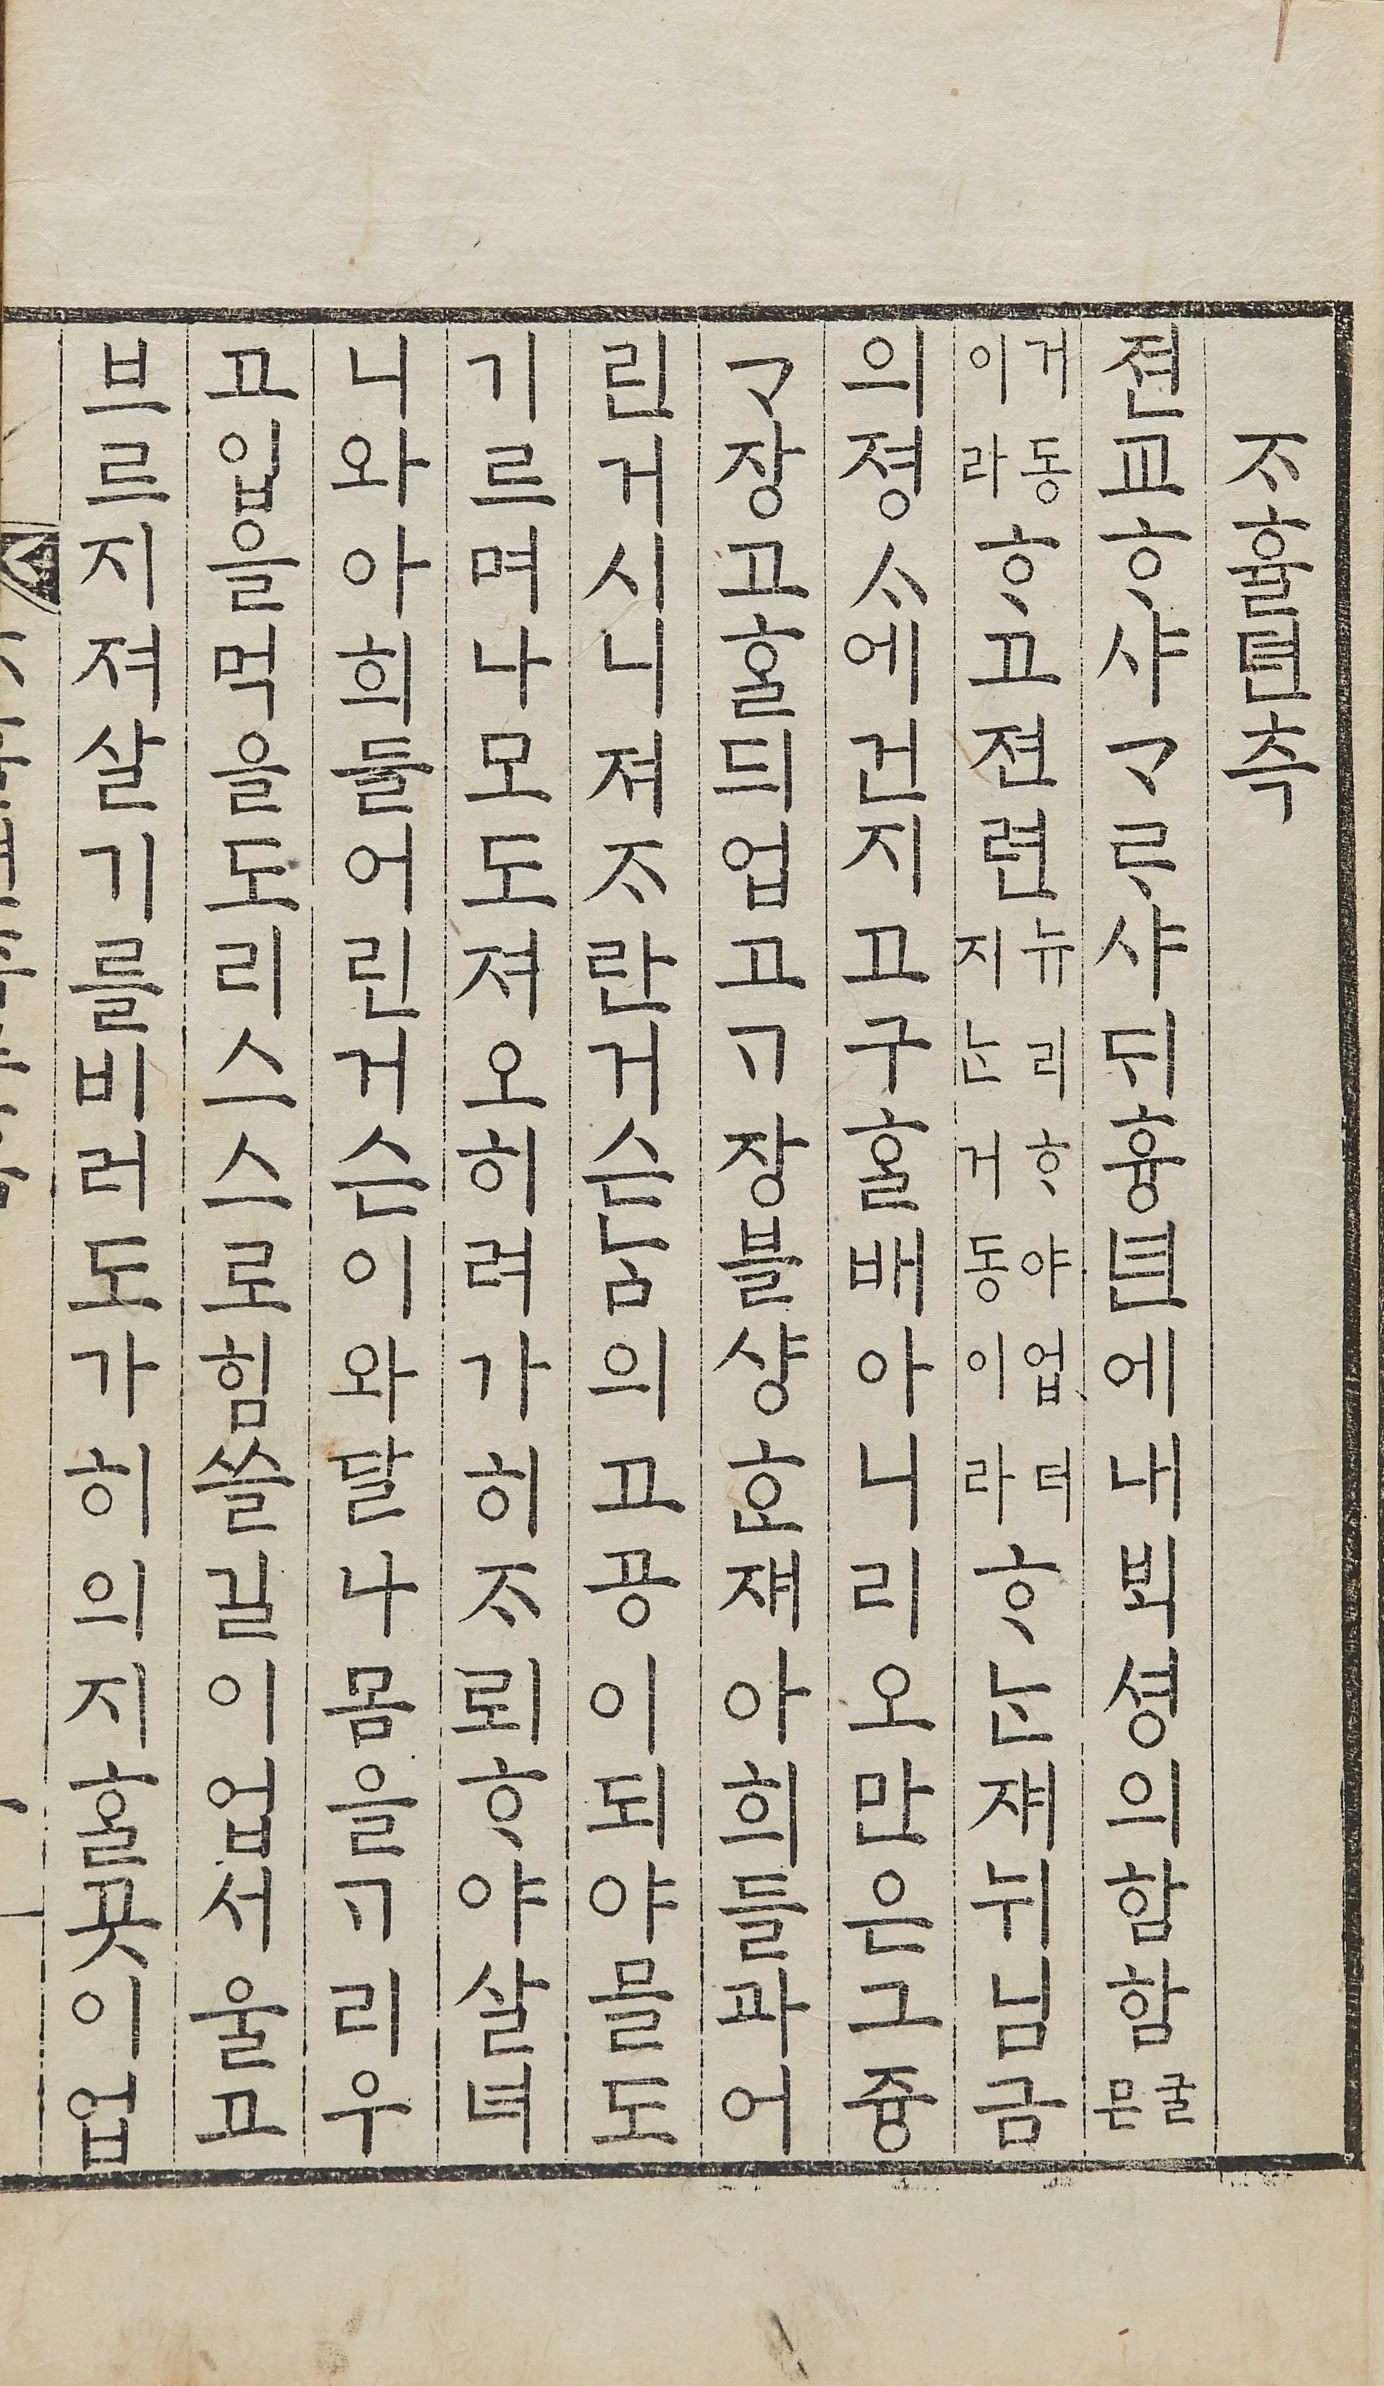 ᄌᆞ휼뎐측
젼교ᄒᆞ샤ᄀᆞᄅᆞ샤ᄃᆡ흉년에내ᄇᆡᆨ셩의함함굴믄
거동이라ᄒᆞ고젼련뉴리ᄒᆞ야업더지ᄂᆞᆫ거동이라ᄒᆞᄂᆞᆫ쟤뉘님금
의졍ᄉᆞ에건지고구ᄒᆞᆯ배아니리오만은그즁
ᄀᆞ장고ᄒᆞᆯᄃᆡ업고ᄀᆞ장블샹ᄒᆞᆫ쟤아희들과어
린거시니져ᄌᆞ란거슨ᄂᆞᆷ의고공이되야믈도
기르며나모도져오히려가히ᄌᆞ뢰ᄒᆞ야살녀
니와아희들어린거슨이와달나몸을ᄀᆞ리우
고입을먹을도리스스로힘쓸길이업서울고
브르지져살기를비러도가히의지ᄒᆞᆯ곳이업